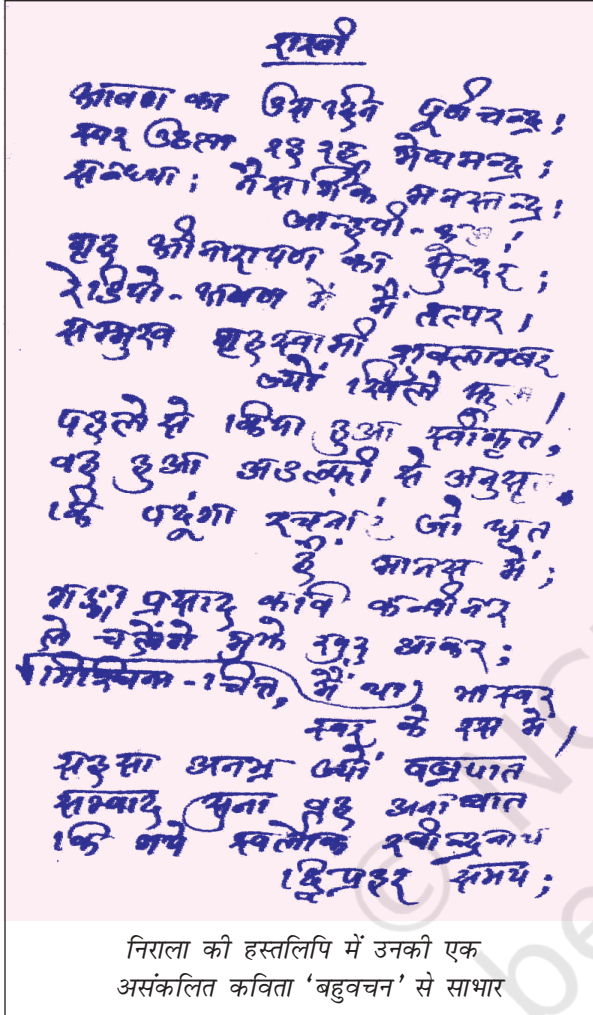 राखी
श्रावण का उस दिन पूर्ण चन्द्र;
स्वर उठता रह रह मेघमन्द्र;
सन्ध्या; नैसर्गिक मनस्तन्द्र;
जान्हवी-
गृह श्रीनारायण का सुन्दर;
रेडियो-श्रवण में मैं तत्पर।
सम्मुख गृहस्वामी
ज्यों खिले
पहले से किया हुआ स्वीकृत,
वह हुआ से
कि पढ़ूंगा रचनाएं जो धृत
हैं मानस में;
गङ्गाप्रसाद कवि
ले चलेंगे मुझे खुद आकर;
-चित्त, मैं था भास्वर
स्वर के रस में।
सहसा अनभ्र ज्यों वज्रपात
सम्वाद सुना वह
कि गये स्वर्लोक रवीन्द्रनाथ
द्विप्रहर समय;
निराला की हस्तलिपि में उनकी एक
असंकलित कविता ‘बहुवचन’ से साभार
© NC
be